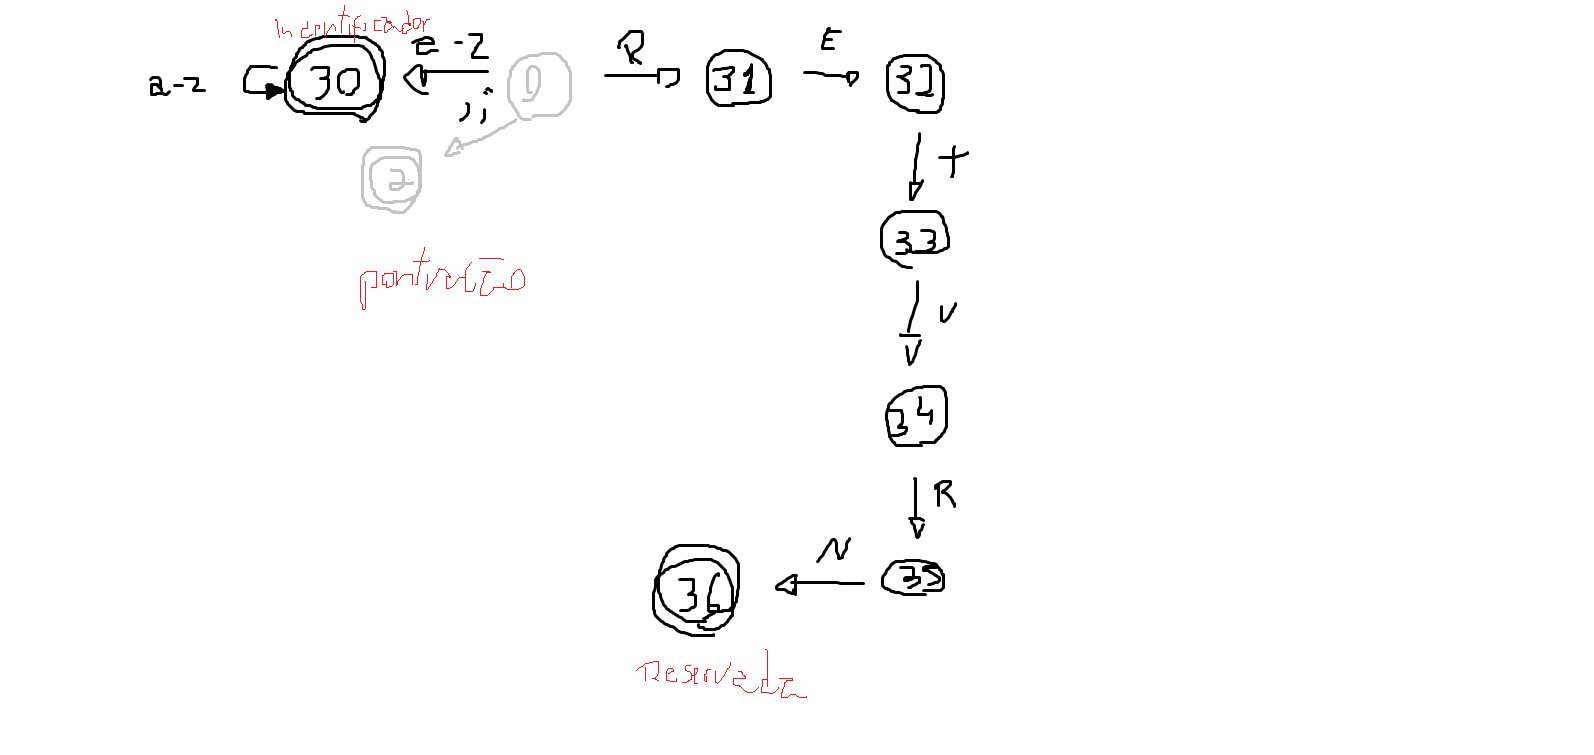 Indentificador
a-z 30 a-z 0 R 31 E 32
, ;
2
T
33
pontuação
U
34
R
N
36 35
Reservada